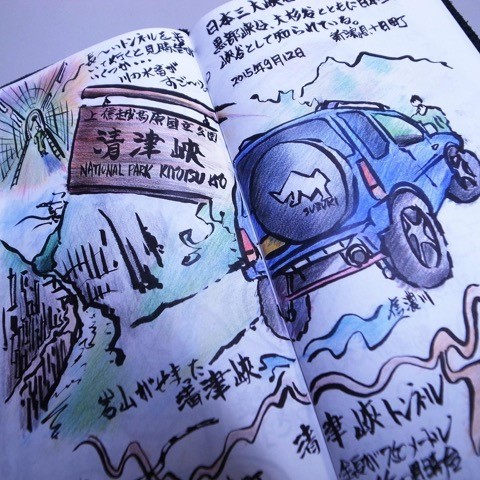 長いトンネルを
いて行くと見晴
いくつか・・・
川の水音が
すごーい
上信越高原国立公園
清津峡
NATIONAL PARK KIYOTSU KYO
岩山がせまる
清津峡
日本三大峡谷
黒部峡谷、大杉谷とともに日本三
峡谷として知られている。
新潟県十日町
2015年9月12日
SUZUKI
信濃川
清津峡トンネル
全長が750メートル